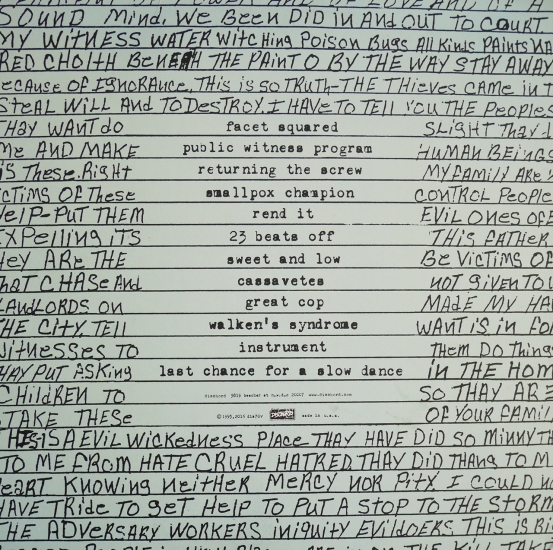 SOUND MIND. WE BEEN DID IN AND OUT TO COURT.
MY WITNESS WATER WITCHING POISON BUGS ALL KINDS PAINTS
RED CHOITH BENEATH THE PAINT O BY THE WAY STAY AWAY
ECAUSE OF IGNORANCE, THIS IS SO TRUTH-THE THIEVES CAME IN T
STEAL WILL AND TO DESTROY. I HAVE TO TELL YOU THE PEOPLES
THAY WANT dO facet squared SLIGHT THAY
ME AND MAKE public witness program HUMAN BEINGS
IS THESE. RIGHT returning the screw MY FAMILY ARE
ICTIMS OF THESE smallpox champion CONTROL PEOPLE
HELP-PUT THEM rend it EVIL ONES OFF
EXPELLING ITS 23 beats off THIS FATHER
HEY ARE THE sweet and low BE VICTIMS OF
THAT CHASE AND cassavetes NOT GIVEN TO
LANDLORDS ON great cop MADE MY HA
THE CITY. TELL walken's syndrome WANT IS IN FOR
WITNESSES TO instrument THEM DO THING
HAY PUT ASKING last chance for a slow dance IN THE HOM
CHILDREN TO SO THAY ARE
TAKE THESE made in u.s.a. OF YOUR FAMIL
THIS IS A EVIL WICKEDNESS PLACE THAY HAVE DID SO MINNY TH
TO ME FROM HATE CRUEL HATRED, THAY DID THANG TO M
HEART KNOWING NEITHER MERCY NOR PITY I COULD NO
HAVE TRIDE TO GET HELP TO PUT A STOP TO THE STORM
THE ADVERSARY WORKERS INIQUITY EVILDOERS THIS IS